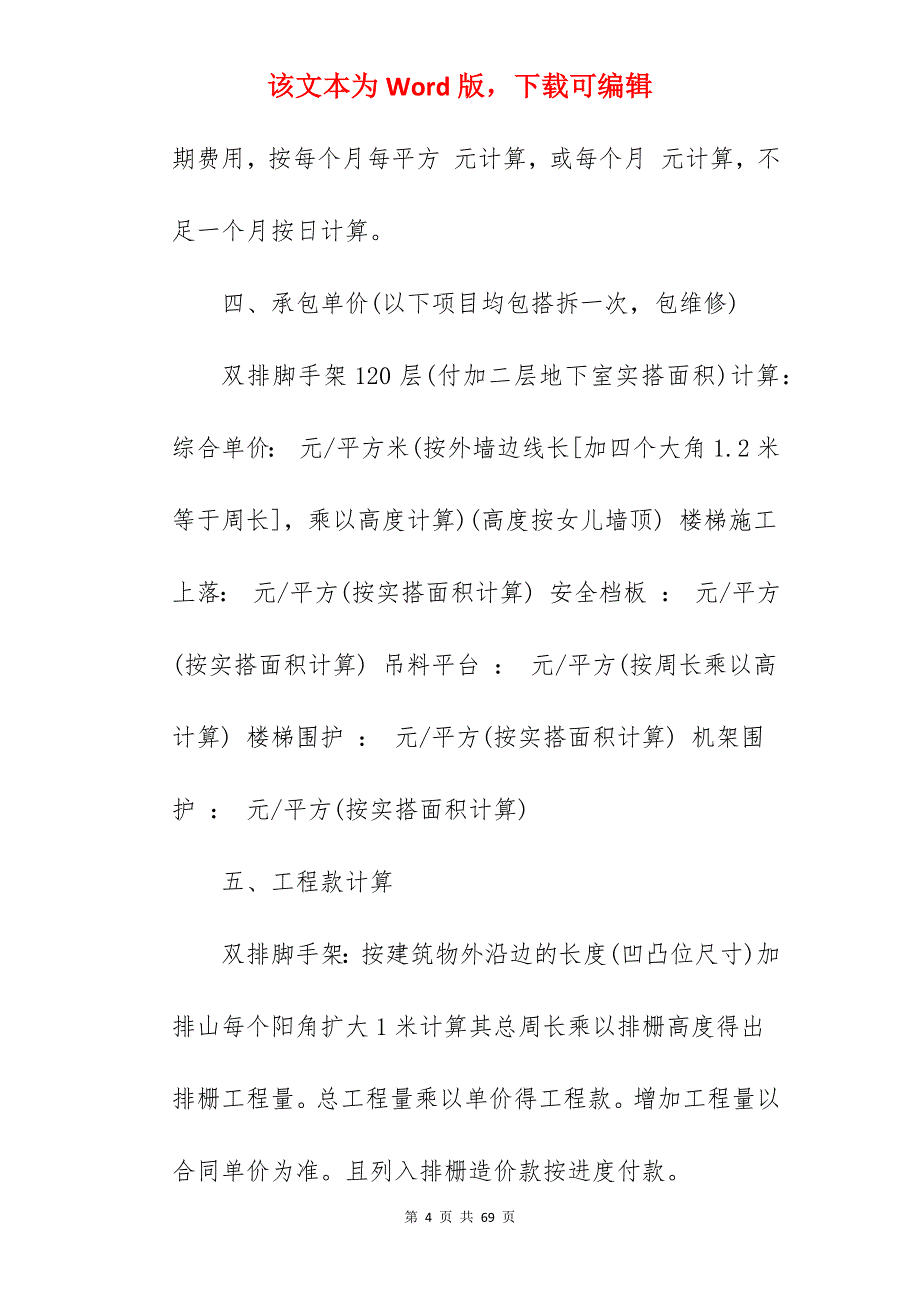 该文本为 Word 版，下载可编辑
期费用，按每个月每平方 元计算，或每个月 元计算，不
足一个月按日计算。
四、承包单价(以下项目均包搭拆一次，包维修)
双排脚手架 120 层(付加二层地下室实搭面积)计算：
综合单价： 元/平方米(按外墙边线长[加四个大角 1.2 米
等于周长]，乘以高度计算)(高度按女儿墙顶) 楼梯施工
上落： 元/平方(按实搭面积计算) 安全档板 ： 元/平方
(按实搭面积计算) 吊料平台 ： 元/平方(按周长乘以高
计算) 楼梯围护 ： 元/平方(按实搭面积计算) 机架围
护 ： 元/平方(按实搭面积计算)
五、工程款计算
双排脚手架：按建筑物外沿边的长度(凹凸位尺寸)加
排山每个阳角扩大 1 米计算其总周长乘以排栅高度得出
排栅工程量。总工程量乘以单价得工程款。增加工程量以
合同单价为准。且列入排栅造价款按进度付款。
第 4 页 共 69 页